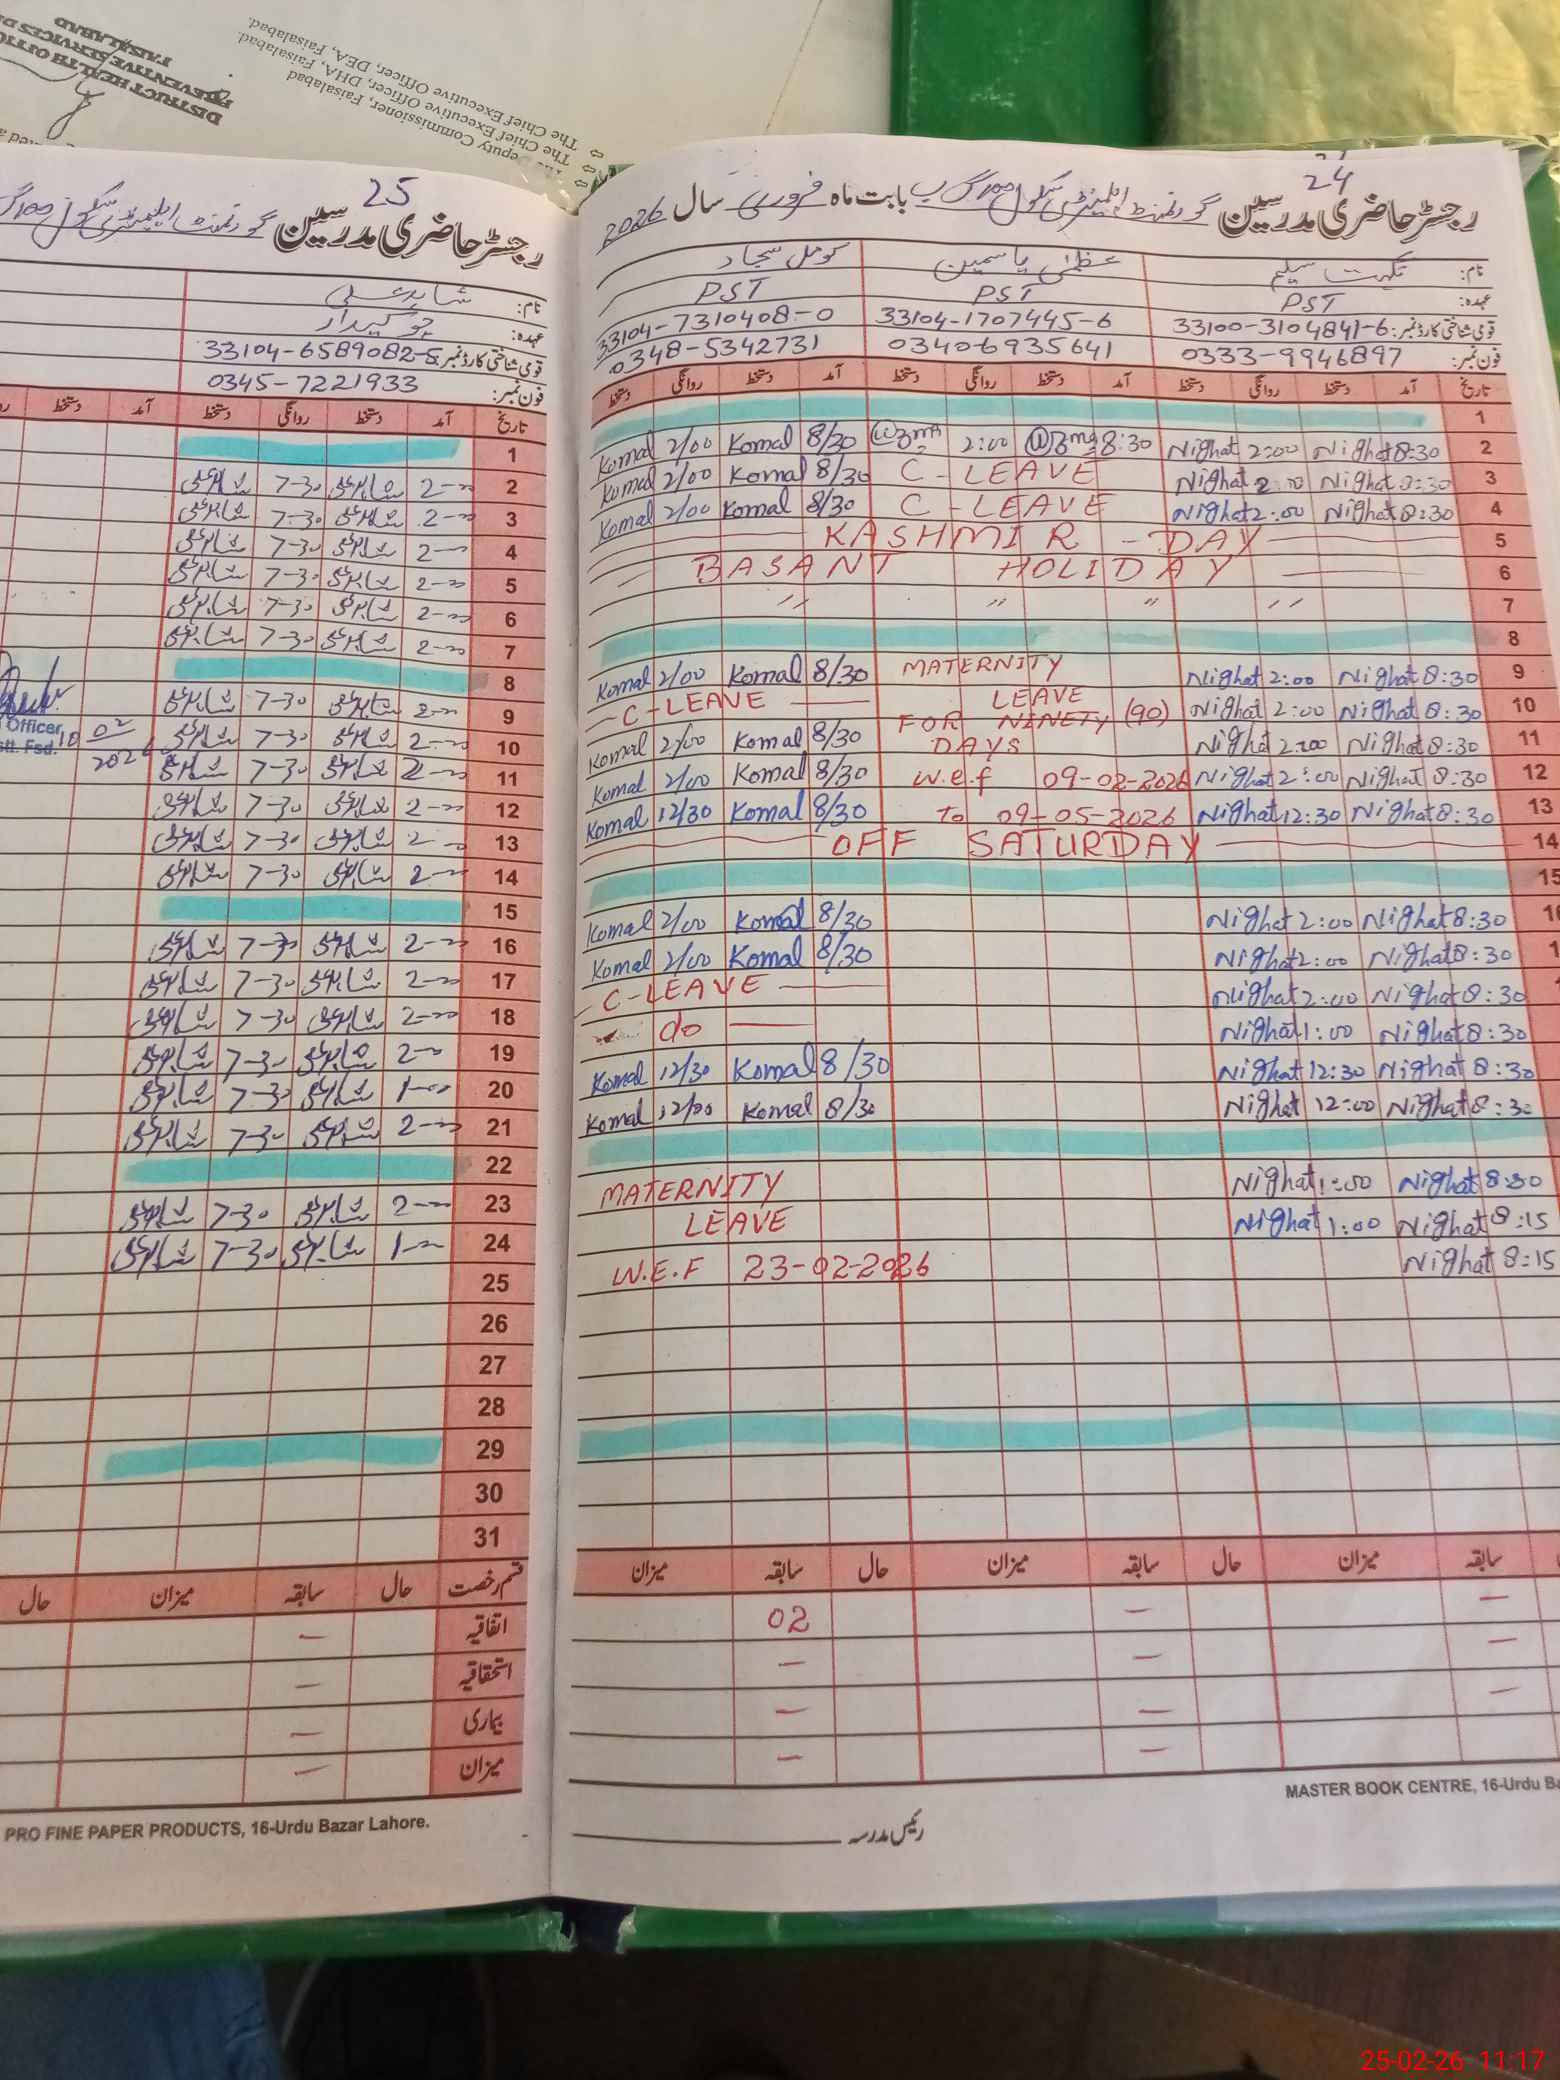 DISTRICT HEALTH OFFICER
PREVENTIVE SERVICES
FAISALABAD
Deputy Commissioner, Faisalabad
The Chief Executive Officer, DHA, Faisalabad.
The Chief Executive Officer, DEA, Faisalabad.
24
رجسٹر حاضری مدرسین گورنمنٹ ایلیمنٹری سکول بابت ماہ فروری سال 2026
نام: نگہت سلیم عظمیٰ یاسمین کومل سجاد
عہدہ: PST PST PST
قومی شناختی کارڈ نمبر: 33100-3104841-6 33104-1707445-6 33104-7310408-0
فون نمبر: 0333-9946897 03406935641 0348-5342731
تاریخ آمد دستخط روانگی دستخط آمد دستخط روانگی دستخط آمد دستخط روانگی دستخط
1
Komal 2/00 Komal 8/30 2:00 8:30 Nighat 2:00 Nighat 8:30 2
Komal 2/00 Komal 8/30 C-LEAVE Nighat 2:00 Nighat 8:30 3
Komal 2/00 Komal 8/30 C-LEAVE Nighat 2:00 Nighat 8:30 4
KASHMIR - DAY 5
BASANT HOLIDAY 6
" " " " 7
8
Komal 2/00 Komal 8/30 MATERNITY Nighat 2:00 Nighat 8:30 9
C-LEAVE LEAVE Nighat 2:00 Nighat 8:30 10
Komal 2/00 Komal 8/30 FOR NINETY (90) DAYS Nighat 2:00 Nighat 8:30 11
Komal 2/00 Komal 8/30 W.e.f 09-02-2026 Nighat 2:00 Nighat 8:30 12
Komal 12/30 Komal 8/30 To 09-05-2026 Nighat 12:30 Nighat 8:30 13
OFF SATURDAY 14
15
Komal 2/00 Komal 8/30 Nighat 2:00 Nighat 8:30
Komal 2/00 Komal 8/30 Nighat 2:00 Nighat 8:30
C-LEAVE Nighat 2:00 Nighat 8:30
do Nighat 1:00 Nighat 8:30
Komal 12/30 Komal 8/30 Nighat 12:30 Nighat 8:30
Komal 12/00 Komal 8/30 Nighat 12:00 Nighat 8:30
MATERNITY Nighat 1:00 Nighat 8:30
LEAVE Nighat 1:00 Nighat 8:15
W.E.F 23-02-2026 Nighat 8:15
سابقہ میزان حال سابقہ میزان حال سابقہ میزان
02 — —
— — —
— — —
— —
MASTER BOOK CENTRE, 16-Urdu Ba
رئیس مدرسہ
25
رجسٹر حاضری مدرسین گورنمنٹ ایلیمنٹری سکول
نام: شاہد علی
عہدہ: چوکیدار
قومی شناختی کارڈ نمبر: 33104-6589082-5
فون نمبر: 0345-7221933
تاریخ آمد دستخط روانگی دستخط آمد دستخط
1
7-30 2-00 2
7-30 2-00 3
7-30 2-00 4
7-30 2-00 5
7-30 2-00 6
7-30 2-00 7
8
7-30 2-00 9
7-30 2-00 10
7-30 2-00 11
7-30 2-00 12
7-30 2-00 13
7-30 2-00 14
15
7-30 2-00 16
7-30 2-00 17
7-30 2-00 18
7-30 2-00 19
7-30 1-00 20
7-30 2-00 21
22
7-30 2-00 23
7-30 1-00 24
25
26
27
28
29
30
31
Officer
Fsd. 10 02 2026
قسم رخصت حال سابقہ میزان حال
اتفاقیہ —
استحقاقیہ —
بیماری —
میزان —
PRO FINE PAPER PRODUCTS, 16-Urdu Bazar Lahore.
25-02-26 11:17